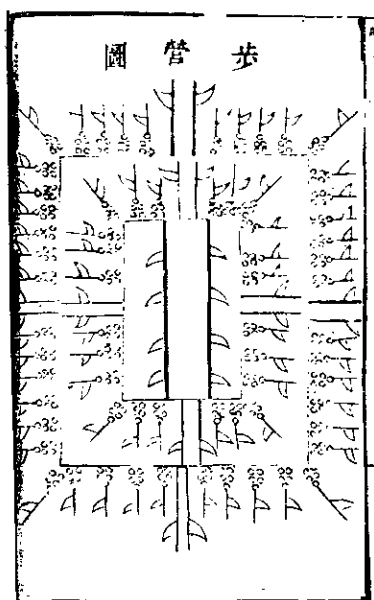 步營圖